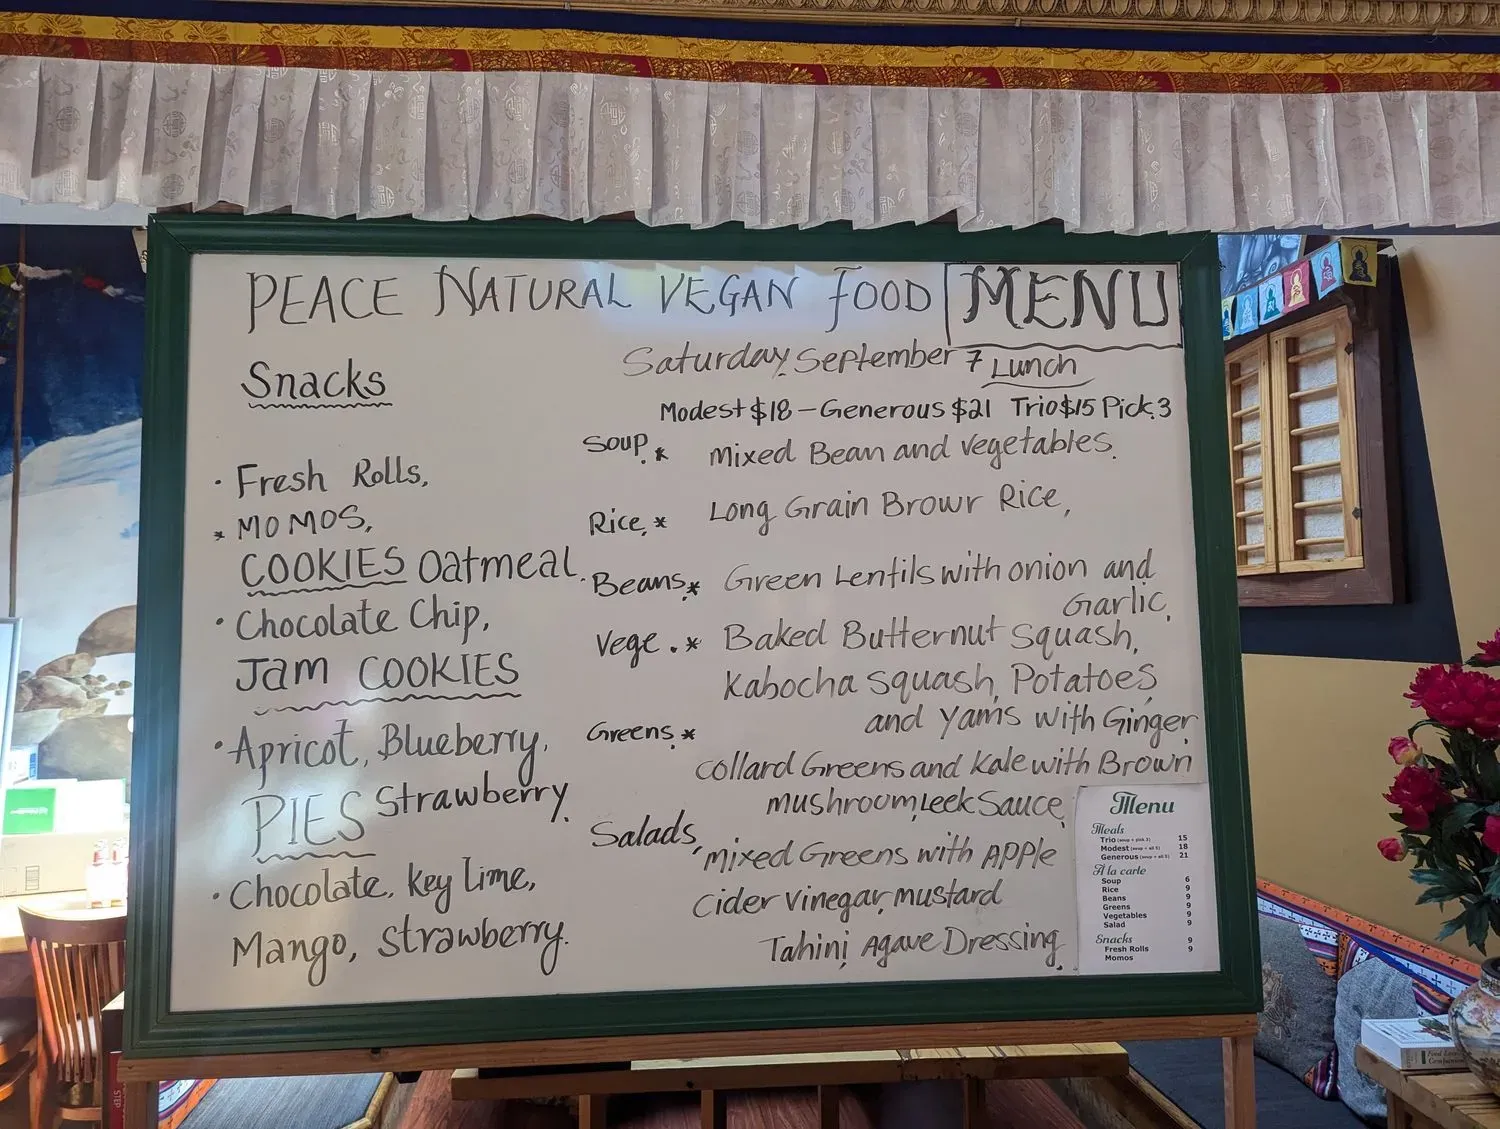 PEACE NATURAL VEGAN FOOD MENU
Saturday, September 7 Lunch
Modest $18 – Generous $21 Trio $15 Pick 3
Snacks
· Fresh Rolls,
* MOMOS,
COOKIES Oatmeal.
· Chocolate Chip,
Jam COOKIES
· Apricot, Blueberry,
PIES Strawberry.
· Chocolate, Key lime,
Mango, Strawberry.
Soup. * Mixed Bean and Vegetables.
Rice. * Long Grain Browr Rice,
Beans. * Green Lentils with onion and
Garlic,
Vege . * Baked Butternut Squash,
Kabocha squash, Potatoes
and Yams with Ginger
Greens. *
collard Greens and Kale with Brown
mushroom, Leek Sauce
Salads, mixed Greens with APPle
cider vinegar, mustard
Tahini, Agave Dressing,
Menu
Meals
Trio (soup + pick 3) 15
Modest (soup + all 5) 18
Generous (soup + all 5) 21
À la carte
Soup 6
Rice 9
Beans 9
Greens 9
Vegetables 9
Salad 9
Snacks
Fresh Rolls 9
Momos 9
STEP